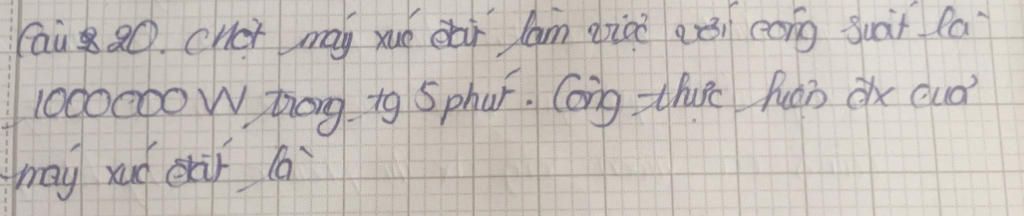 Câu 20. Một máy xúc đất làm việc với công suất là
1000000W trong tg 5 phút. Công thực hiện đx của
máy xúc đất là